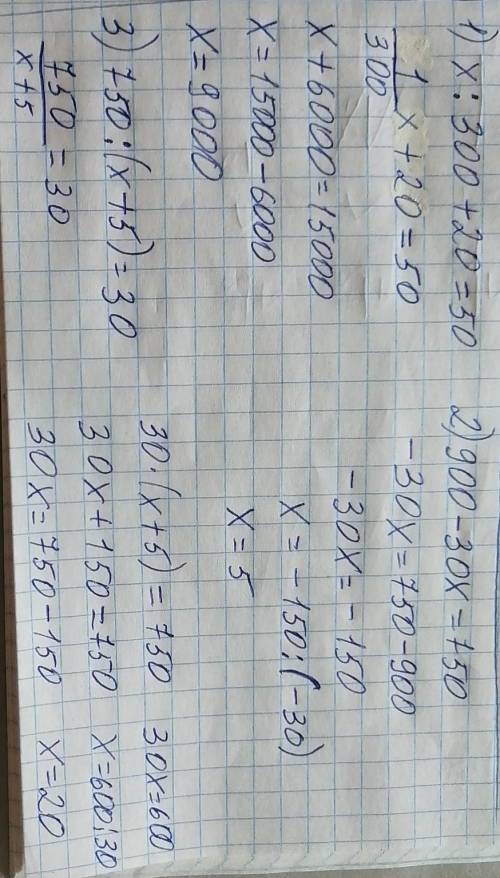 1) x : 300 + 20 = 50
1/300 x + 20 = 50
x + 6000 = 15000
x = 15000 - 6000
x = 9000
2) 900 - 30x = 750
-30x = 750 - 900
-30x = -150
x = -150 : (-30)
x = 5
3) 750 : (x + 5) = 30
750/x + 5 = 30
30 · (x + 5) = 750
30x + 150 = 750
30x = 750 - 150
30x = 600
x = 600 : 30
x = 20